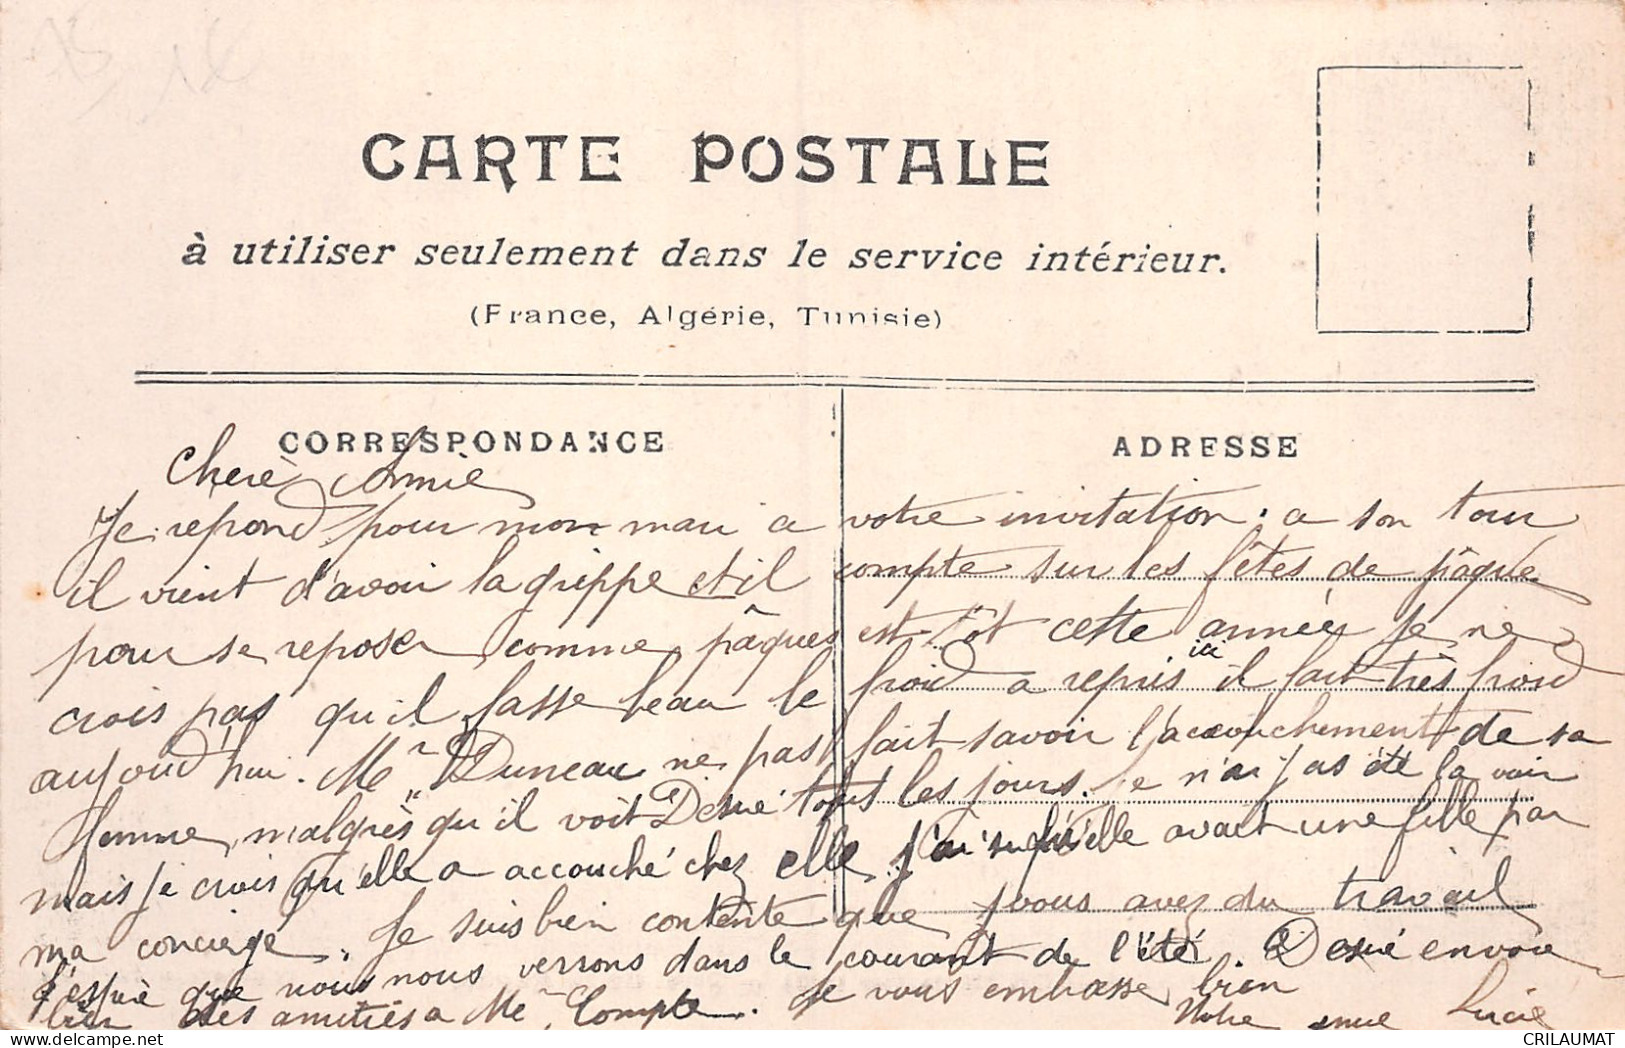 CARTE POSTALE
à utiliser seulement dans le service intérieur.
(France, Algérie, Tunisie)
CORRESPONDANCE
ADRESSE
Cherè Amie
Je repond pour mon mari a votre invitation. a son tour
il vient d'avoir la grippe et il compte sur les fêtes de pâque
pour se reposer, comme pâques est tôt cette année je ne
crois pas qu'il fasse beau le froid a repris ici il fait très froid
aujourd'hui. Mr Duneau ne pas fait savoir l'accouchement de sa
femme, malgrès qu'il voit Desiré tout les jours. je n'ai pas été la voir
mais je crois qu'elle a accouché chez elle j'ai su qu'elle avait une fille par
ma concierge. Je suis bien contente que vous avez du travail
j'espère que nous nous verrons dans le courant de l'été. Desiré envoie
bien des amitiés a Mr Compte. Je vous embrasse bien
Votre amie Lucie
CRILAUMAT